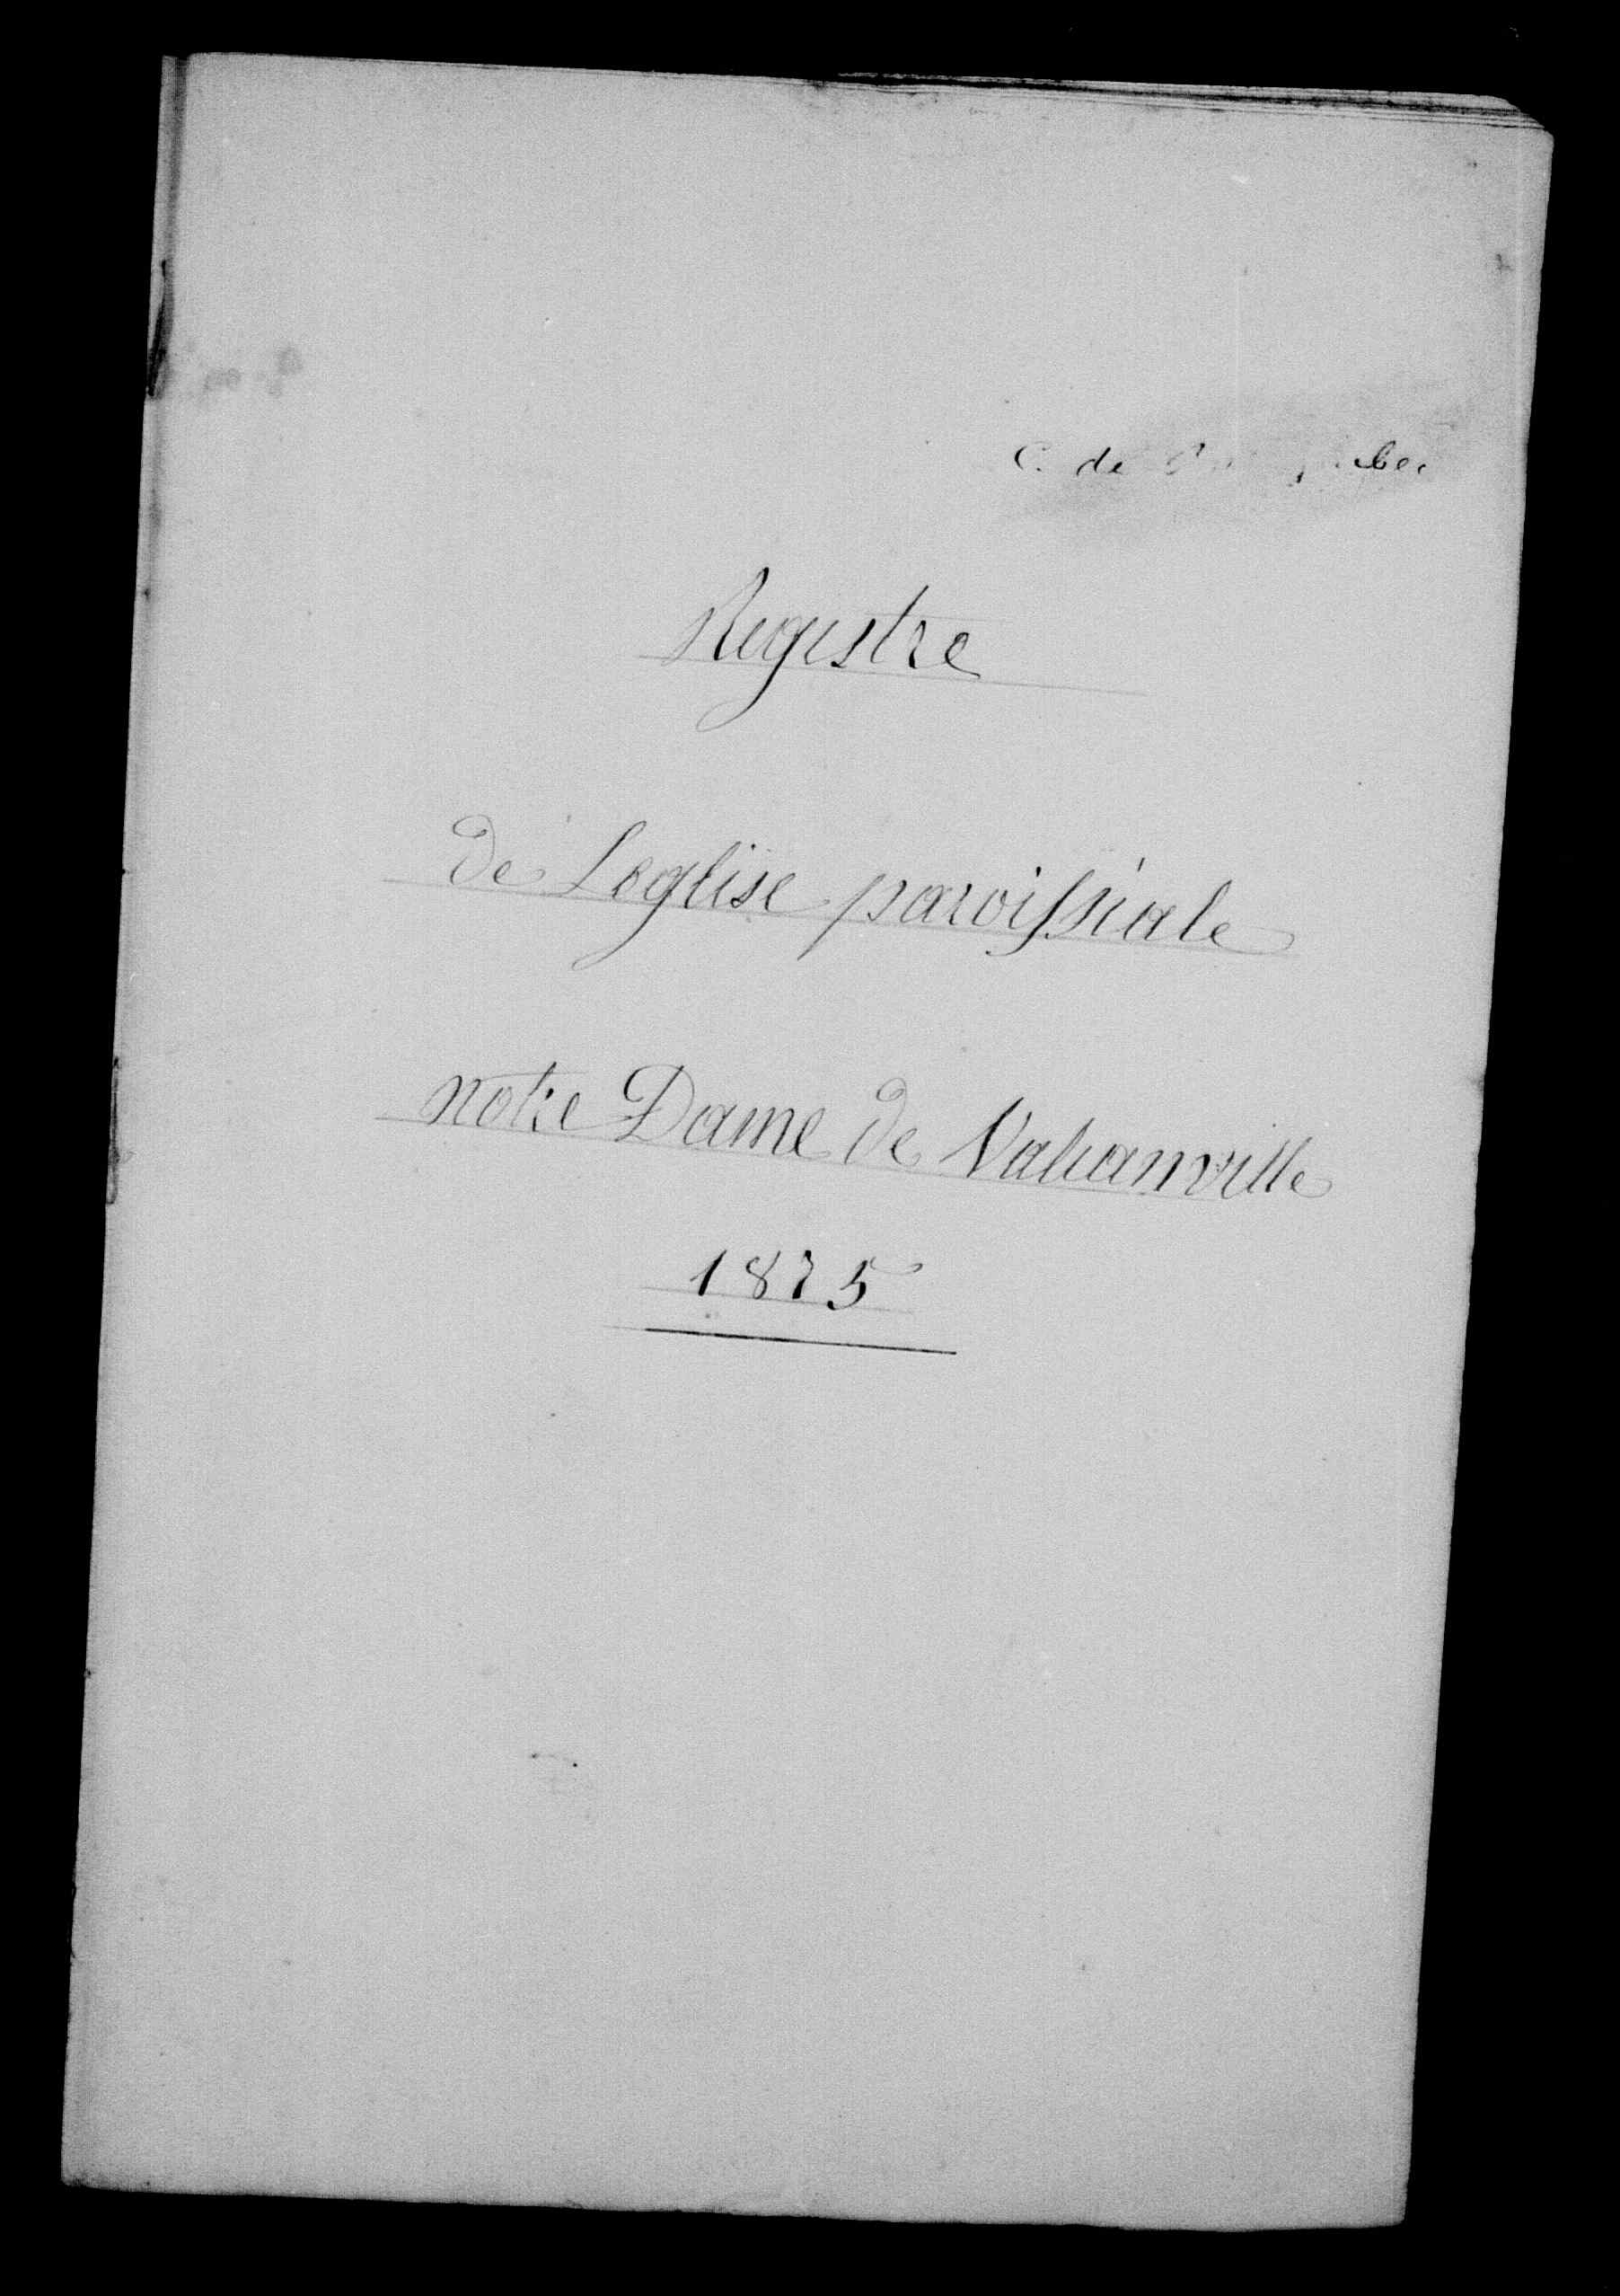 C. de
Registre
de Leglise paroissiale
notre Dame de Valcanville
1875